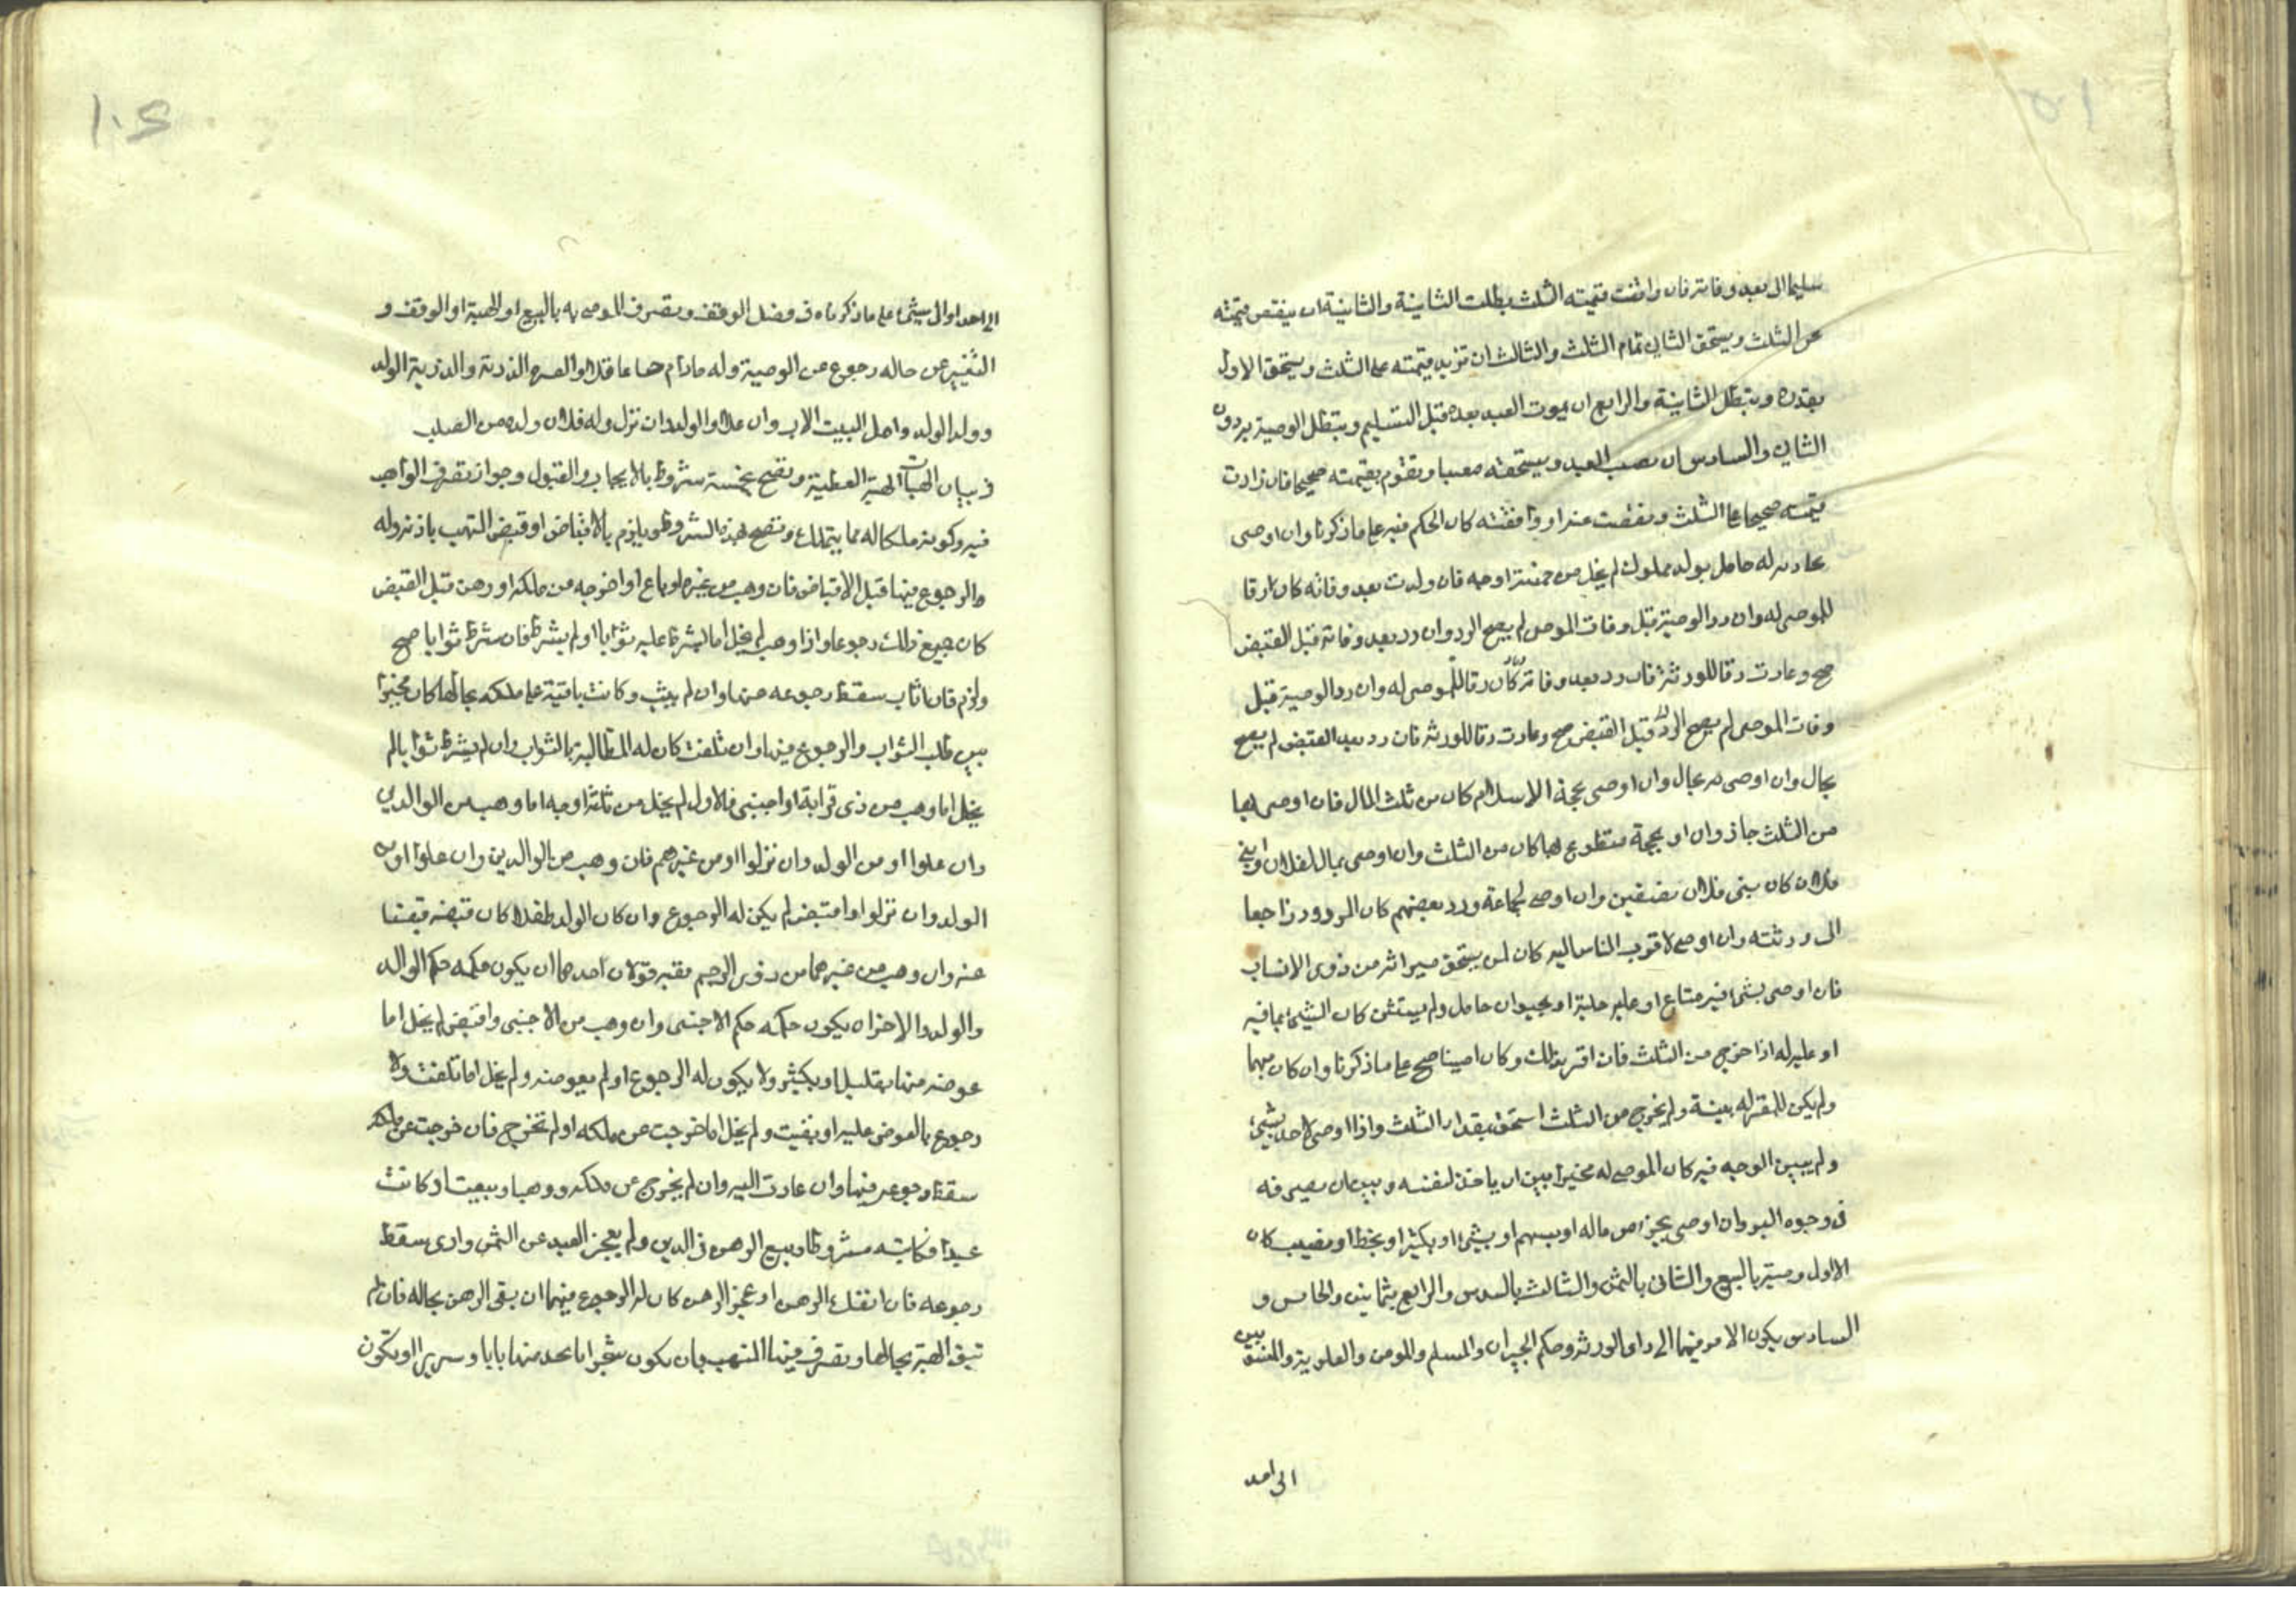 سليما الى بعد وفاته فان وافقت قيمته الثلث بطلت الثانية والثانية ان ينقص قيمته
عن الثلث ويستحق الثاني تمام الثلث والثالث ان تزيد قيمته على الثلث ويستحق الاول
بقدره ويبطل الثانية والرابع ان يموت العبد بعده قبل التسليم ويبطل الوصية بردون
الثاني والسادس ان يصيب العبد ويستحقه معيبا ويقوم بقيمته صحيحا فان زادت
قيمته صحيحا على الثلث ونقصت عنه او وافقته كان الحكم فيه على ما ذكرنا وان اوصى
بجارية له حامل بولد مملوك لم يخل من خمسة اوجه فان ولدت بعد وفاته كان ارقا
للموصى له وان رد الوصية قبل وفات الموصى لم يصح الرد وان رد بعد وفاته قبل القبض
صح وعادت رقا للورثة فان رد بعد وفاته كان رقا للموصى له وان رد الوصية قبل
وفات الموصى لم يصح الرد قبل القبض صح وعادت رقا للورثة فان رد بعد القبض لم يصح
بحال وان اوصى به بحال وان اوصى بحجة الاسلام كان من ثلث المال فان اوصى لها
من الثلث جاز وان او بحجة متطوع لها كان من الثلث وان اوصى بمال لفلان وبني
فلان كان بنى فلان مفترقين وان اوصى لجماعة ورد بعضهم كان المردود راجعا
الى ورثته وان اوصى لاقرب الناس اليه كان لمن يستحق ميراثه من ذوى الانساب
فان اوصى بشئ فيه متاع او عليه حلية او بحيوان حامل ولم يستثن كان الشئ بما فيه
او عليه له اذا خرج من الثلث فان اقر بذلك وكان امينا صح على ما ذكرنا وان كان متهما
ولم يكن للمقر له بينة ولم يخرج من الثلث استحق بقدار الثلث واذا اوصى لاحد بشئ
ولم يبين الوجه فيه كان الموصى له مخيرا بين ان ياخذ لنفسه وبين ان يصرفه
فى وجوه البر وان اوصى بجزء من ماله او بسهم او بشئ او بكثير او بحظ او نصيب كان
الاول وصيته بالسبع والثانى بالثمن والثالث بالسدس والرابع بثمانين والخامس و
السادس يكون الامر فيهما الى راى الورثة وحكم الجيران والمسلم والمومن والعلوية والمنسوبين
الى احد
الى احد او الى شئ على ما ذكرناه فى فصل الوقف وتصرف الموصى به بالبيع او الهبة او الوقف و
التغيير عن حاله رجوع عن الوصية وله ما دام حيا عاقلا والعترة الذرية والذرية الولد
وولد الولد واهل البيت الاب وان علا والولد وان نزل وله فلان ولده من الصلب
فى بيان الهبات الهبة العطية وتصح بخمسة شروط بالايجاب والقبول وجواز تصرف الواهب
فيه وكونه ملكا له مما يتملك وتصح بهذه الشروط ويلزم بالاقباض او قبض المتهب باذنه وله
والرجوع فيها قبل الاقباض فان وهب من غيره او باع او اخرجه من ملكه او رهن قبل القبض
كان جميع ذلك رجوعا واذا وهب لم يخل اما يشرط عليه ثوابا او لم يشرط فان شرط ثوابا صح
ولزم فان اثاب سقط رجوعه عنها وان لم يثب وكانت باقية على ملكه بحالها كان مخيرا
بين طلب الثواب والرجوع فيها وان تلفت كان له المطالبة بالثواب وان لم يشرط ثوابا لم
يخل اما وهب من ذى قرابة او اجنبى فالاول لم يخل من ثلثة اوجه اما وهب من الوالدين
وان علوا او من الولد وان نزلوا او من غيرهم فان وهب من الوالدين وان علوا او من
الولد وان نزلوا واقبض لم يكن له الرجوع وان كان الولد طفلا كان قبضه قبضا
عنه وان وهب من غيرهما من ذوى الرحم ففيه قولان احدهما ان يكون حكمه حكم الوالد
والولد والاخر ان يكون حكمه حكم الاجنبى وان وهب من الاجنبى واقبض لم يخل اما
عوضه منها بقليل او بكثير ولا يكون له الرجوع او لم يعوضه ولم يخل اما تلفت ولا
رجوع بالعوض عليه او بقيت ولم يخل اما خرجت عن ملكه او لم تخرج فان خرجت عن ملكه
سقط رجوعه فيها وان عادت اليه وان لم يخرج عن ملكه ووهبا وبيعت او كانت
عبدا فكاتبه مشروطا وبيع الرهن فى الدين ولم يعجز العبد عن الثمن وادى سقط
رجوعه فان انفك الرهن او عجز الرهن كان له الرجوع فيهما ان بقى الرهن بحاله فان لم
تبق الهبة بحالها وتصرف فيها المتهب بان يكون شجرا اتخذ منها بابا وسريرا او يكون